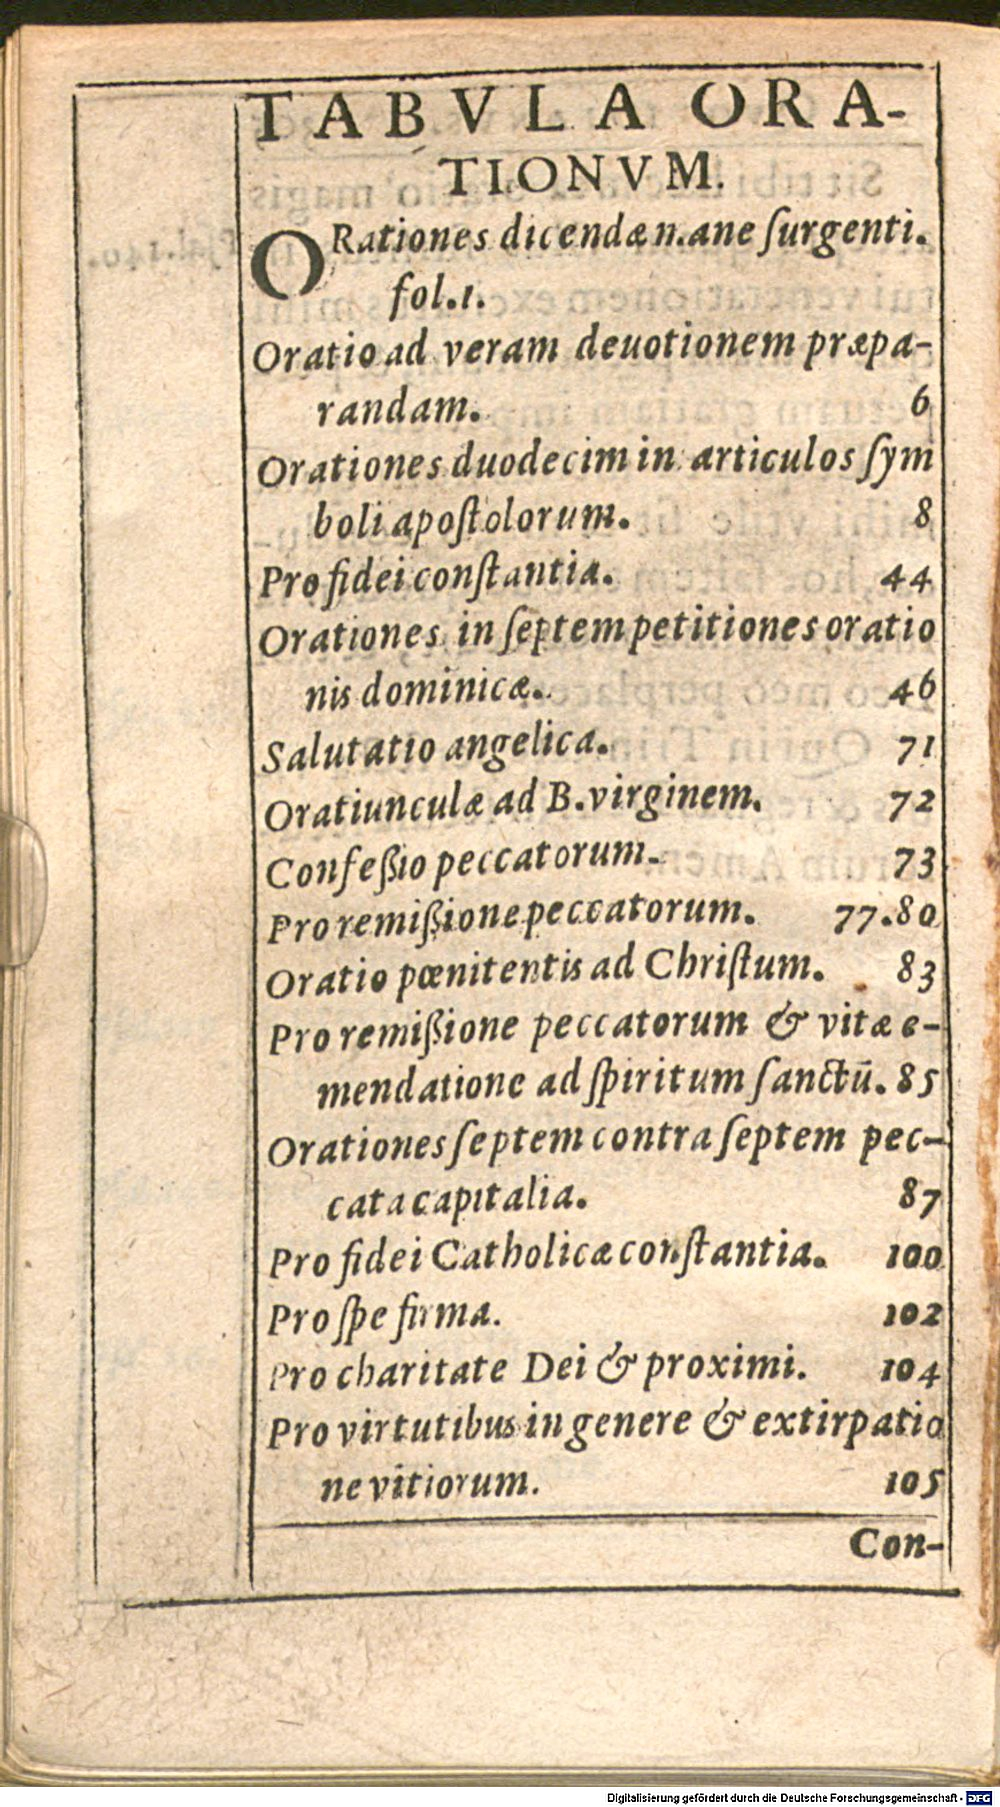 TABVLA ORA-
TIONVM.
ORationes dicendæ mane ſurgenti.
fol.1.
Oratio ad veram deuotionem præpa-
randam. 6
Orationes duodecim in articulos ſym
boli apoſtolorum. 8
Pro fidei conſtantia. 44
Orationes in ſeptem petitiones oratio
nis dominicæ. 46
Salutatio angelica. 71
Oratiunculæ ad B. virginem. 72
Confeßio peccatorum. 73
Pro remißione peccatorum. 77.80
Oratio pœnitentis ad Chriſtum. 83
Pro remißione peccatorum & vitæ e-
mendatione ad ſpiritum ſanctū. 85
Orationes ſeptem contra ſeptem pec-
cata capitalia. 87
Pro fidei Catholicæ conſtantia. 100
Pro ſpe firma. 102
Pro charitate Dei & proximi. 104
Pro virtutibus in genere & extirpatio
ne vitiorum. 105
Con-
Digitalisierung gefördert durch die Deutsche Forschungsgemeinschaft - DFG